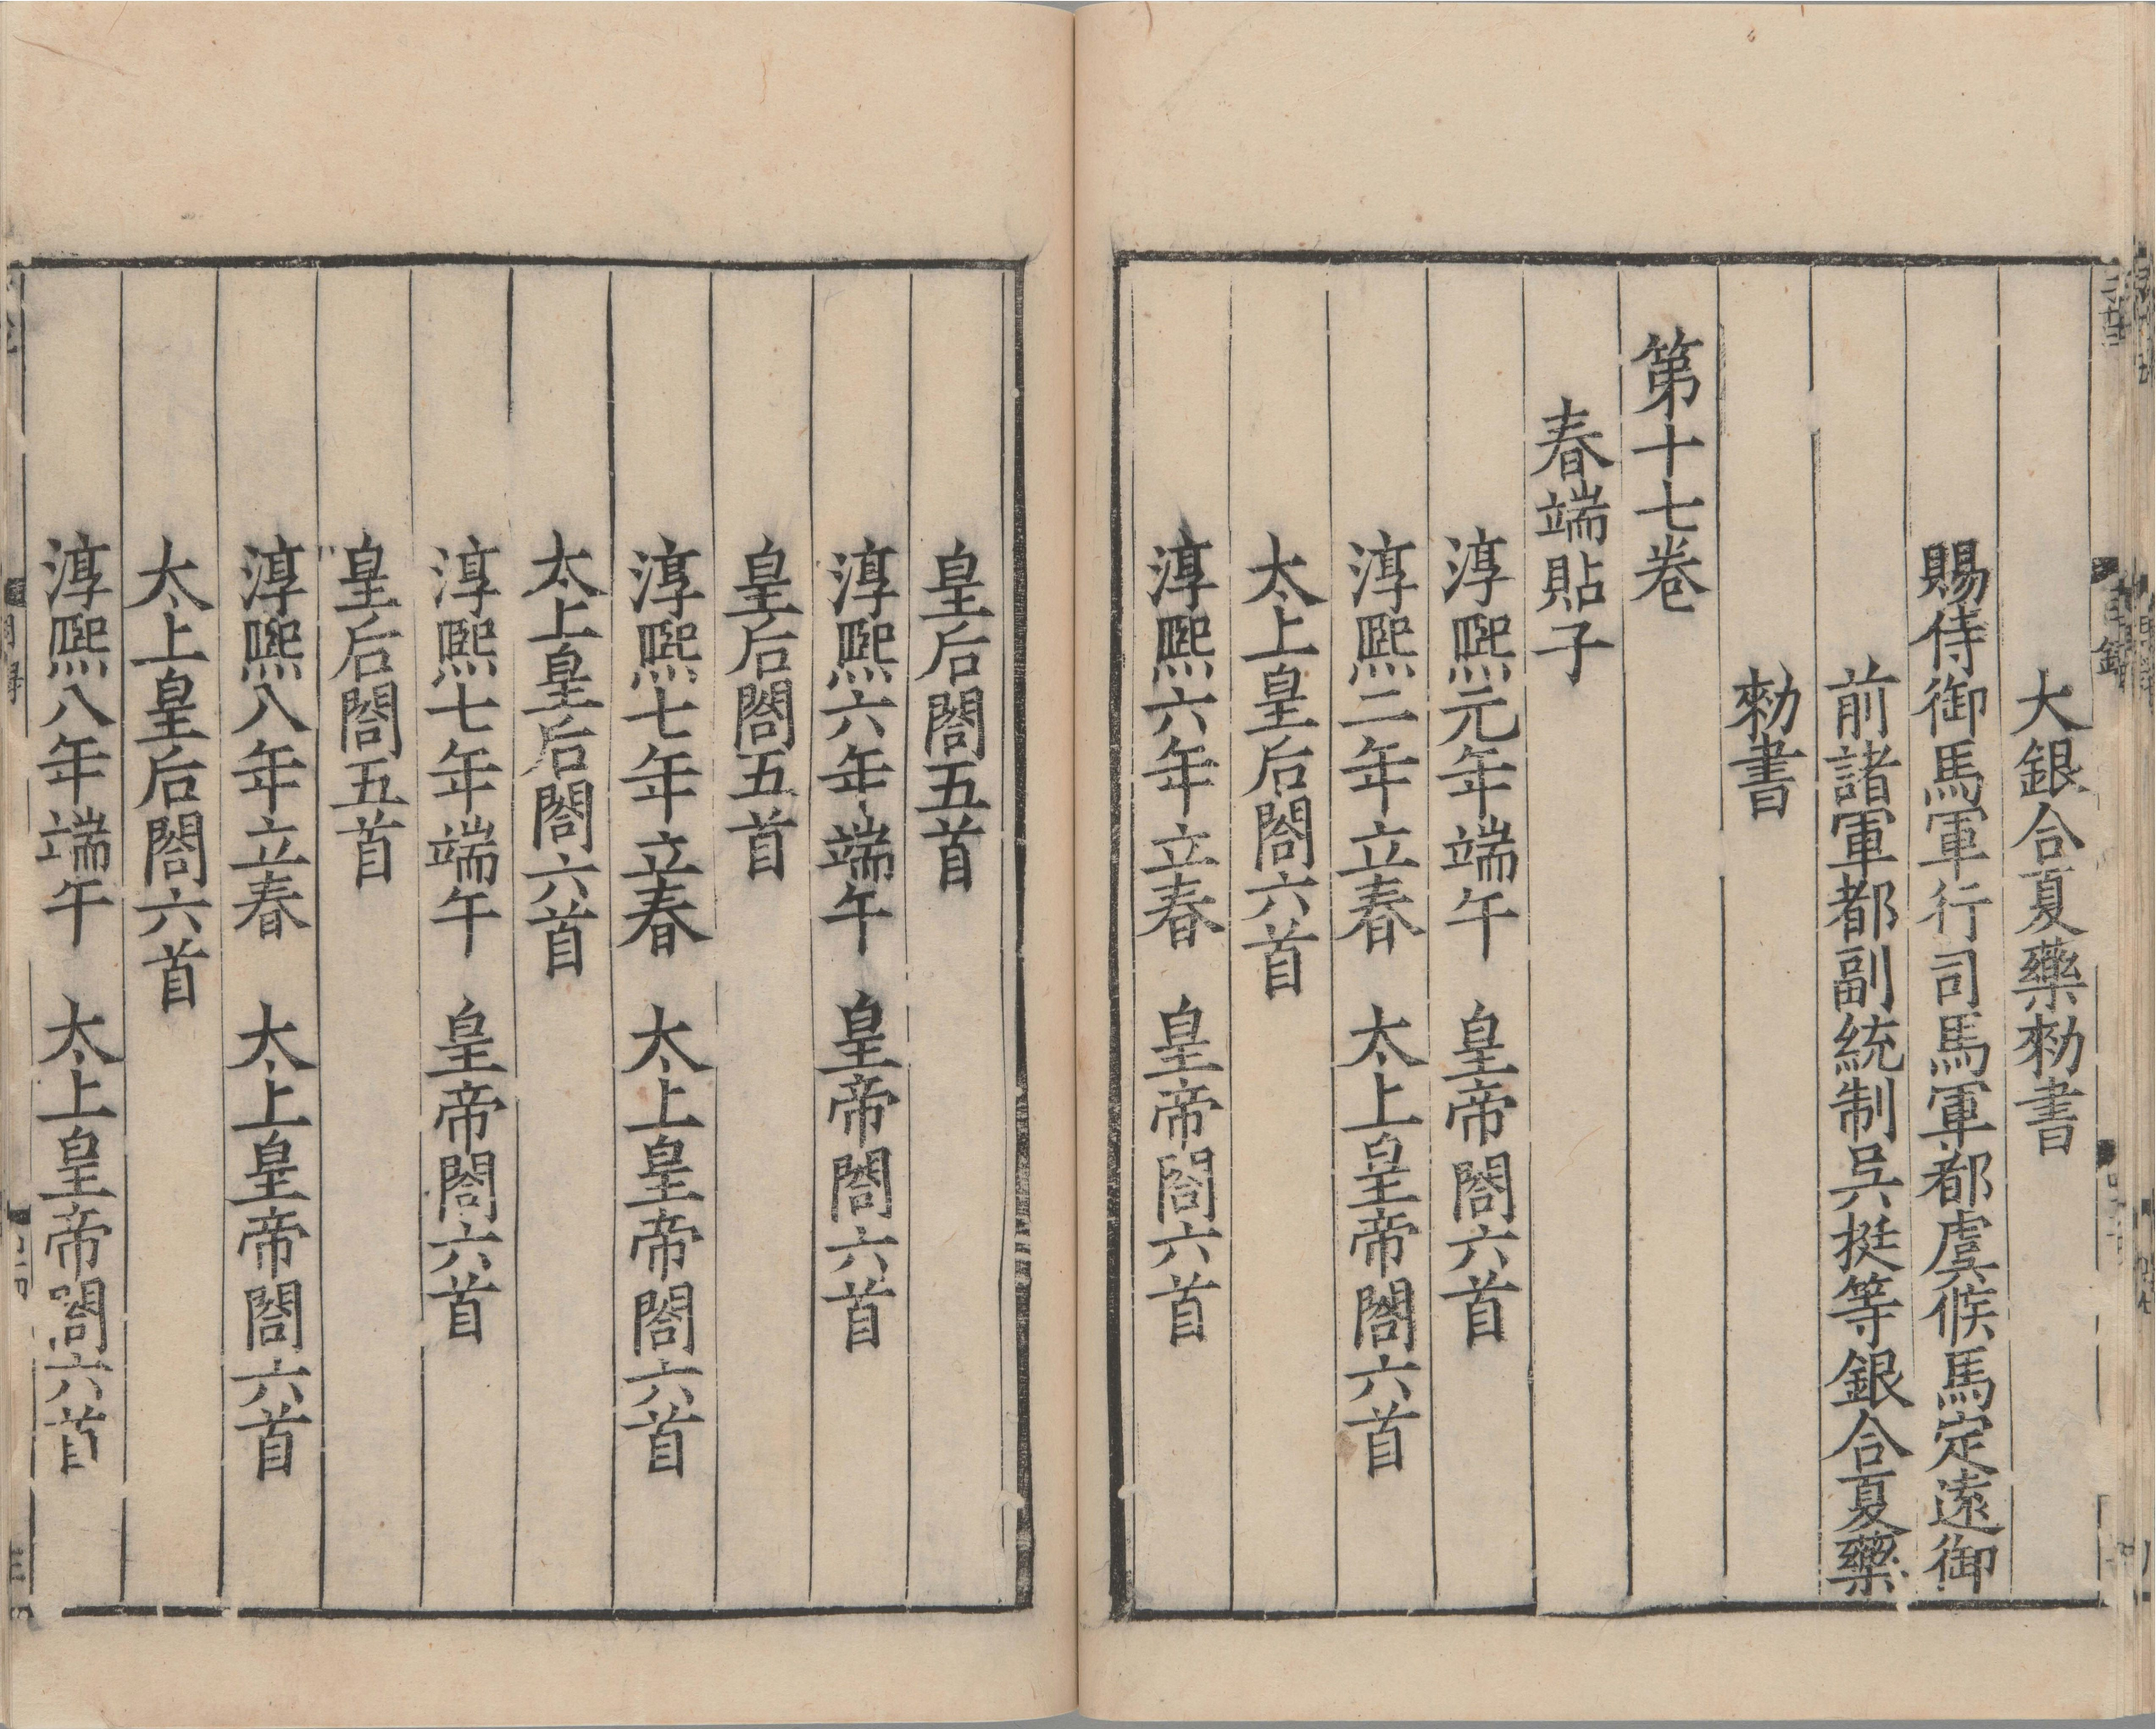 大銀合夏藥勑書
賜侍御馬軍行司馬軍都虞候馬定遠御
前諸軍都副統制吳挺等銀合夏藥
勑書
第十七卷
春端貼子
淳熙元年端午　皇帝閤六首
淳熙二年立春　太上皇帝閤六首
太上皇后閤六首
淳熙六年立春　皇帝閤六首
皇后閤五首
淳熙六年端午　皇帝閤六首
皇后閤五首
淳熙七年立春　太上皇帝閤六首
太上皇后閤六首
淳熙七年端午　皇帝閤六首
皇后閤五首
淳熙八年立春　太上皇帝閤六首
太上皇后閤六首
淳熙八年端午　太上皇帝閤六首